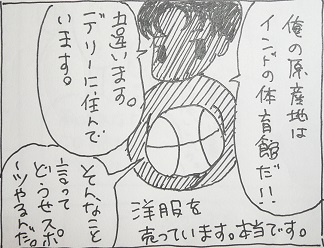 俺の原産地は
インドの体育館だ!!
違います。
デリーに住んで
います。
そんなこと
言って
どうせスポ
ーツやるんだ。
洋服を
売っています。本当です。